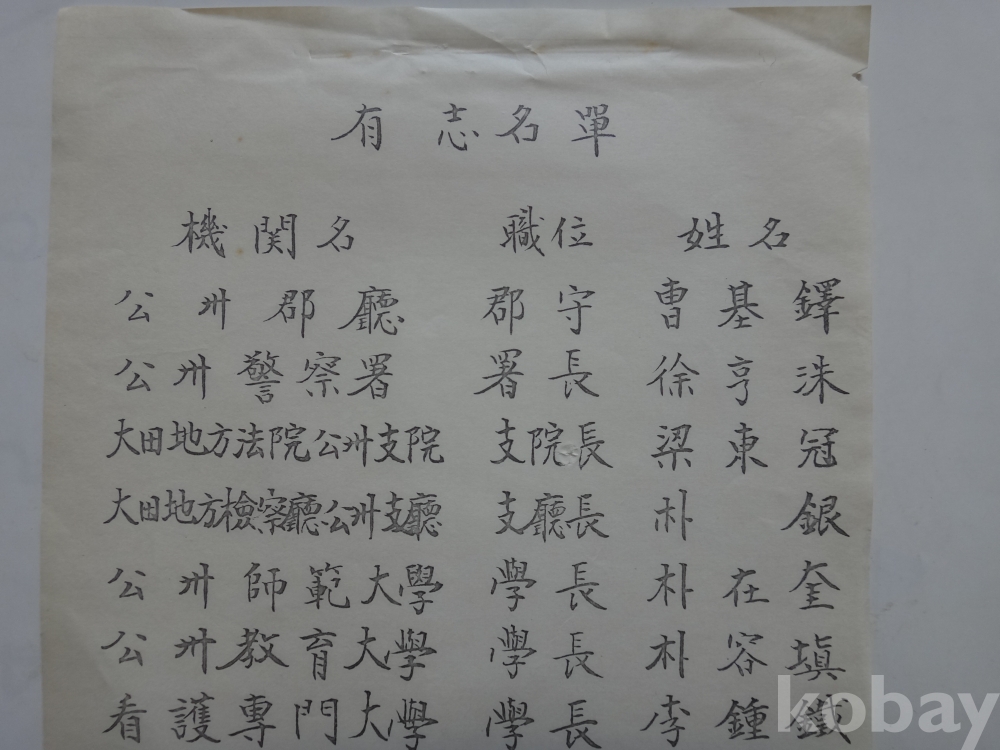 有志名單
機関名 職位 姓名
公州郡廳 郡守 曺基鐸
公州警察署 署長 徐亨洙
大田地方法院公州支院 支院長 梁東冠
大田地方檢察廳公州支廳 支廳長 朴 銀
公州師範大學 學長 朴在奎
公州教育大學 學長 朴容塡
看護專門大學 學長 李鍾鐵
kobay